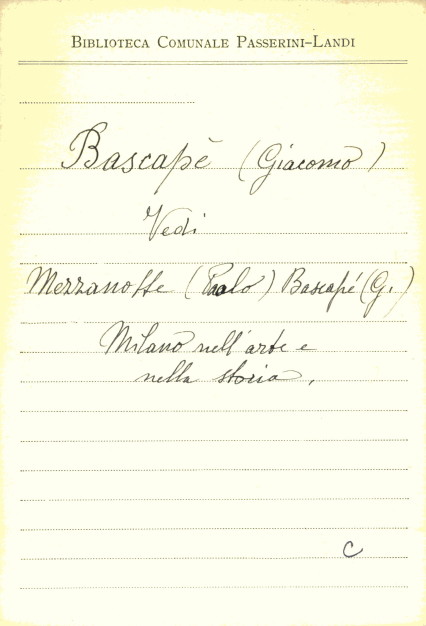 BIBLIOTECA COMUNALE PASSERINI-LANDI
Bascapè (Giacomo)
Vedi
Mezzanotte (Paolo) Bascapé (G.)
Milano nell'arte e
nella storia.
C